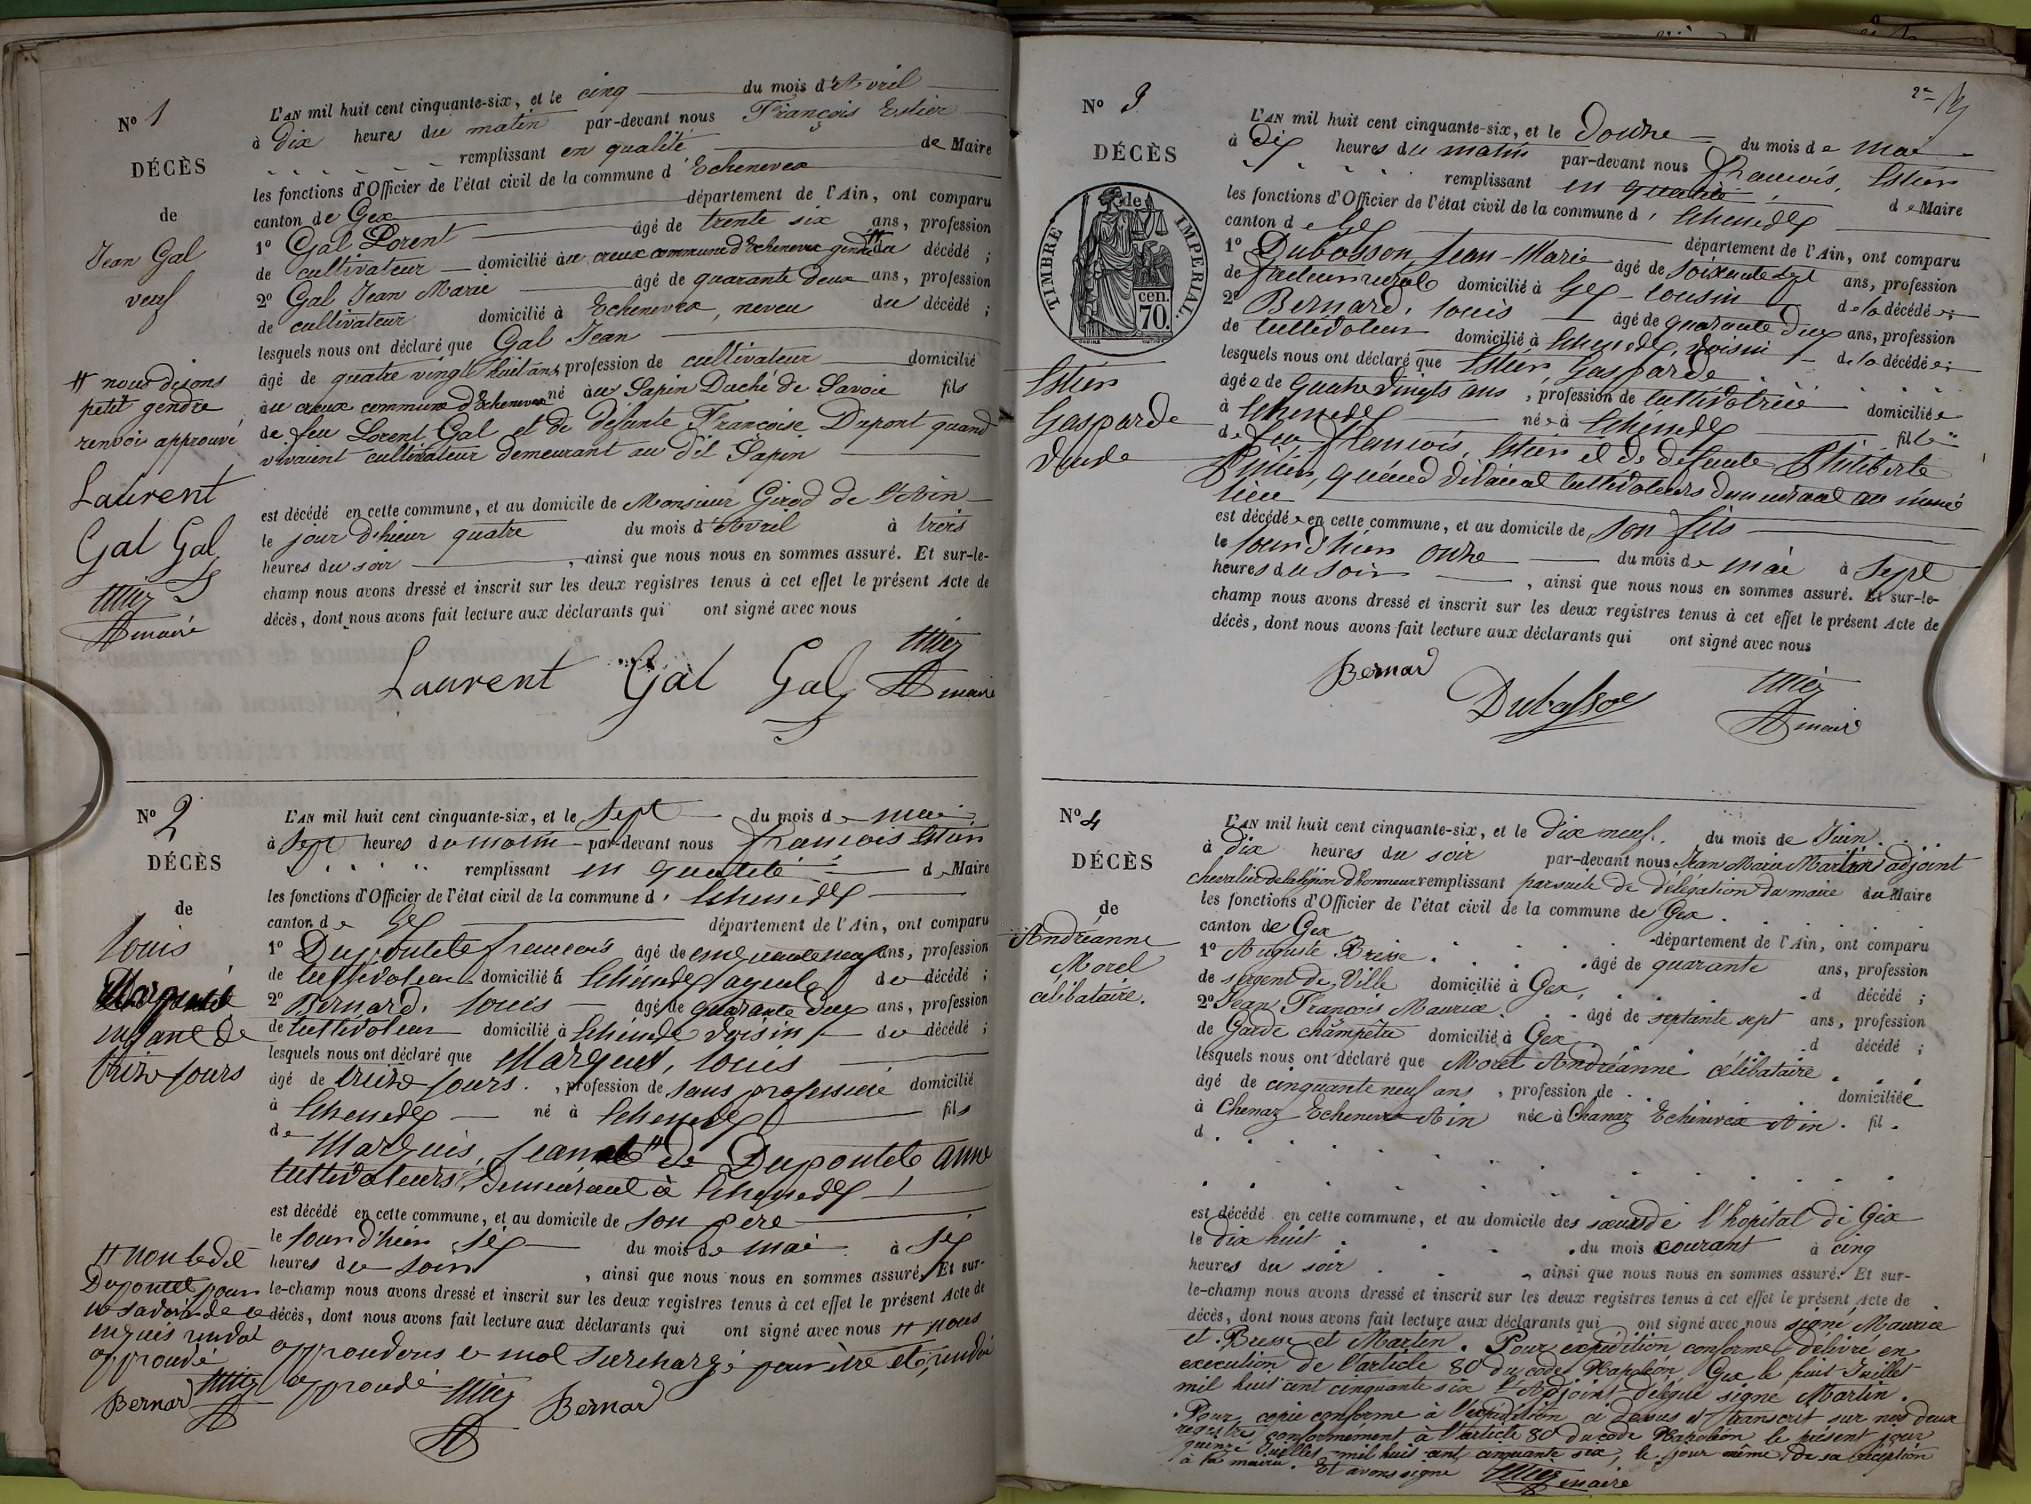 N° 1
DÉCÈS
de
Jean Gal
veuf
# nous disons
petit gendre
renvoi approuvé
Laurent
Gal Gal
maire
L'AN mil huit cent cinquante-six, et le cinq du mois d'Avril
à Dix heures du matin par-devant nous François Estier
remplissant en qualité de Maire
les fonctions d'Officier de l'état civil de la commune d'Echenevex
canton de Gex département de l'Ain, ont comparu
1° Gal Lorent âgé de trente six ans, profession
de cultivateur domicilié au creux commune d'Echenevex gendre # du décédé ;
2° Gal Jean Marie âgé de quarante deux ans, profession
de cultivateur domicilié à Echenevex, neveu du décédé ;
lesquels nous ont déclaré que Gal Jean
âgé de quatre vingt huit ans, profession de cultivateur domicilié
au creux commune d'Echenevex né au Sapin Duché de Savoie fils
de feu Lorent Gal et de défunte Françoise Dupont quand
vivaient cultivateur demeurant au dit Sapin
est décédé en cette commune, et au domicile de Monsieur Girod de l'Ain
le jour d'hier quatre du mois d'Avril à trois
heures du soir , ainsi que nous nous en sommes assuré. Et sur-le-
champ nous avons dressé et inscrit sur les deux registres tenus à cet effet le présent Acte de
décès, dont nous avons fait lecture aux déclarants qui ont signé avec nous
Laurent Gal Gal maire
N° 2
DÉCÈS
de
Louis
Marquis
enfant de
treize jours
# non ledit
Dupontet pour
ne savoir de ce
enquis renvoi
approuvé
Bernard
L'AN mil huit cent cinquante-six, et le sept du mois de mai
à sept heures du matin par-devant nous françois Estier
remplissant en qualité de Maire
les fonctions d'Officier de l'état civil de la commune d'Echenevex
canton de Gex département de l'Ain, ont comparu
1° Dupontet françois âgé de cinquante neuf ans, profession
de cultivateur domicilié à Echenevex ayeul du décédé ;
2° Bernard, Louis âgé de quarante deux ans, profession
de cultivateur domicilié à Echenevex voisin du décédé ;
lesquels nous ont déclaré que Marquis, Louis
âgé de treize jours, profession de sans profession domicilié
à Echenevex né à Echenevex fils
de Marquis, Jean et # de Dupontet anne
cultivateurs, Demeurant à Echenevex
est décédé en cette commune, et au domicile de son père
le jour d'hier six du mois de mai à six
heures du soir , ainsi que nous nous en sommes assuré. Et sur-
le-champ nous avons dressé et inscrit sur les deux registres tenus à cet effet le présent Acte de
décès, dont nous avons fait lecture aux déclarants qui ont signé avec nous # nous
approuvons le mot surchargé pour être et, renvoi
approuvé Bernard
2e
N° 3
DÉCÈS
TIMBRE IMPERIAL
de
cen.
70.
Estier
Gasparde
veuve
L'AN mil huit cent cinquante-six, et le douze du mois de mai
à dix heures du matin par-devant nous françois, Estier
remplissant en qualité de Maire
les fonctions d'Officier de l'état civil de la commune d'Echenevex
canton de Gex département de l'Ain, ont comparu
1° Dubosson, Jean-Marie âgé de soixante sept ans, profession
de facteur rural domicilié à Gex - cousin de la décédée ;
2° Bernard, Louis âgé de quarante deux ans, profession
de cultivateur domicilié à Echenevex, voisin de la décédée ;
lesquels nous ont déclaré que Estier, Gasparde
âgée de quatre vingts ans, profession de cultivatrice domiciliée
à Echenevex née à Echenevex fille
de feu françois, Estier et de défunte Philiberte
quand vivaient cultivateurs demeurant au même
lieu
est décédée en cette commune, et au domicile de son fils
le jour d'hier onze du mois de mai à sept
heures du soir , ainsi que nous nous en sommes assuré. Et sur-le-
champ nous avons dressé et inscrit sur les deux registres tenus à cet effet le présent Acte de
décès, dont nous avons fait lecture aux déclarants qui ont signé avec nous
Bernard
Dubosson
maire
N° 4
DÉCÈS
de
Andréanne
Morel
célibataire.
L'AN mil huit cent cinquante-six, et le dix neuf. du mois de Juin.
à dix heures du soir par-devant nous Jean Marie Martin adjoint
chevalier de la légion d'honneur remplissant par suite de délégation du maire du Maire
les fonctions d'Officier de l'état civil de la commune de Gex.
canton de Gex département de l'Ain, ont comparu
1° Auguste Bresse âgé de quarante ans, profession
de sergent de Ville domicilié à Gex, d décédé ;
2° Jean François Maurice âgé de septante sept ans, profession
de Garde champêtre domicilié à Gex d décédé ;
lesquels nous ont déclaré que Morel Andréanne célibataire
âgé de cinquante neuf ans, profession de domiciliée
à Chenaz Echenevex Ain née à Chanaz Echenevex Ain. fil.
d
est décédé en cette commune, et au domicile des sœurs de l'hopital de Gex
le dix huit du mois courant à cinq
heures du soir , ainsi que nous nous en sommes assuré. Et sur-
le-champ nous avons dressé et inscrit sur les deux registres tenus à cet effet le présent Acte de
décès, dont nous avons fait lecture aux déclarants qui ont signé avec nous signé Maurice
et Bresse et Martin. Pour expédition conforme délivré en
execution de l'article 80 du code Napoléon, Gex le huit Juillet
mil huit cent cinquante six l'Adjoint délégué signé Martin.
Pour copie conforme à l'expédition ci dessus et transcrit sur nos deux
registres conformement à l'article 80 du code Napoléon le présent jour
quinze Juillet mil huit cent cinquante six, le jour même de sa réception
à la mairie. Et avons signé maire